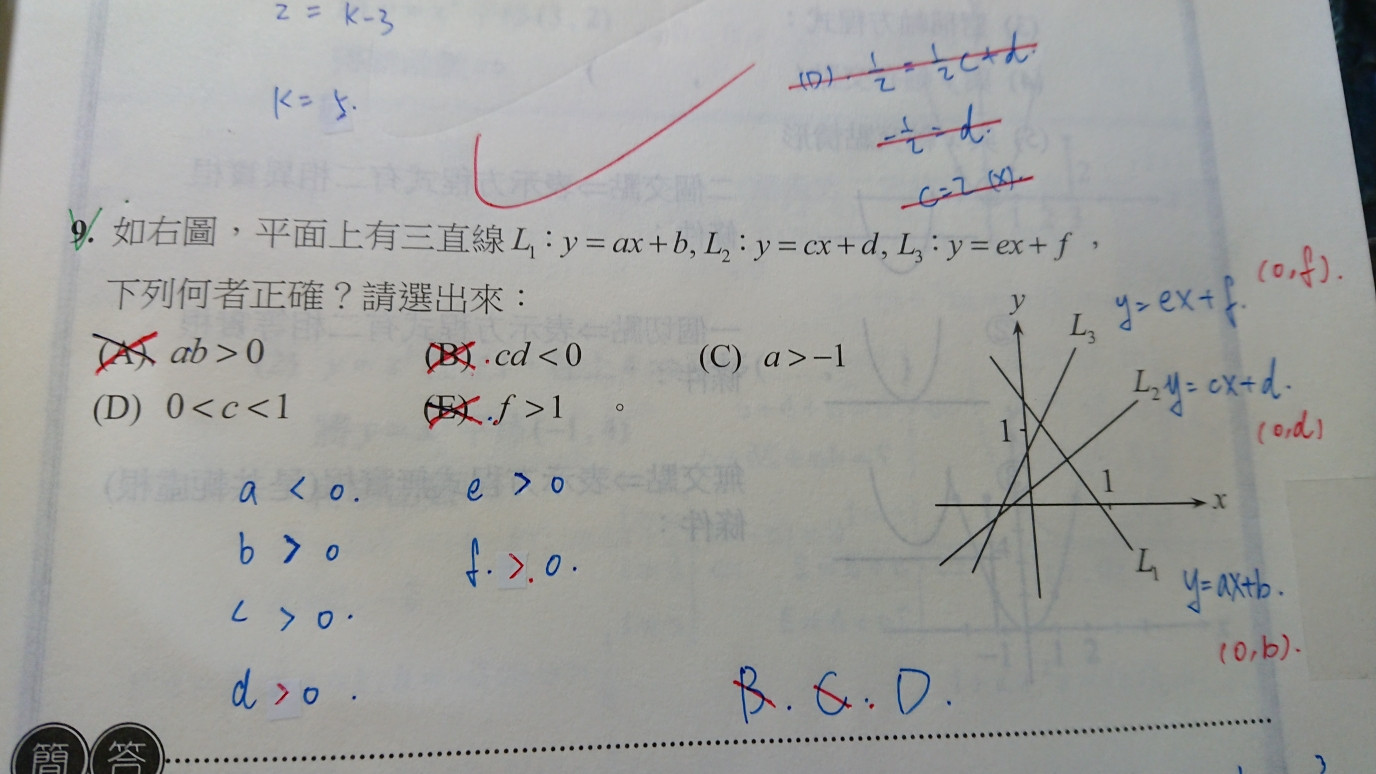 2 = k-3
k = 5.
(D). 1/2 = 1/2 c + d.
-1/2 = d.
c = 2 (x).
9. 如右圖，平面上有三直線 L₁：y = ax + b, L₂：y = cx + d, L₃：y = ex + f，
下列何者正確？請選出來：
(A) ab > 0 (B) cd < 0 (C) a > −1
(D) 0 < c < 1 (E) f > 1 。
y
L₃
y = ex + f.
(0,f).
L₂
y = cx + d.
(0,d)
1
1
x
L₁
y = ax+b.
(0,b).
a < 0. e > 0
b > 0 f. >. 0.
c > 0.
d > 0.
B. C. D.
簡答